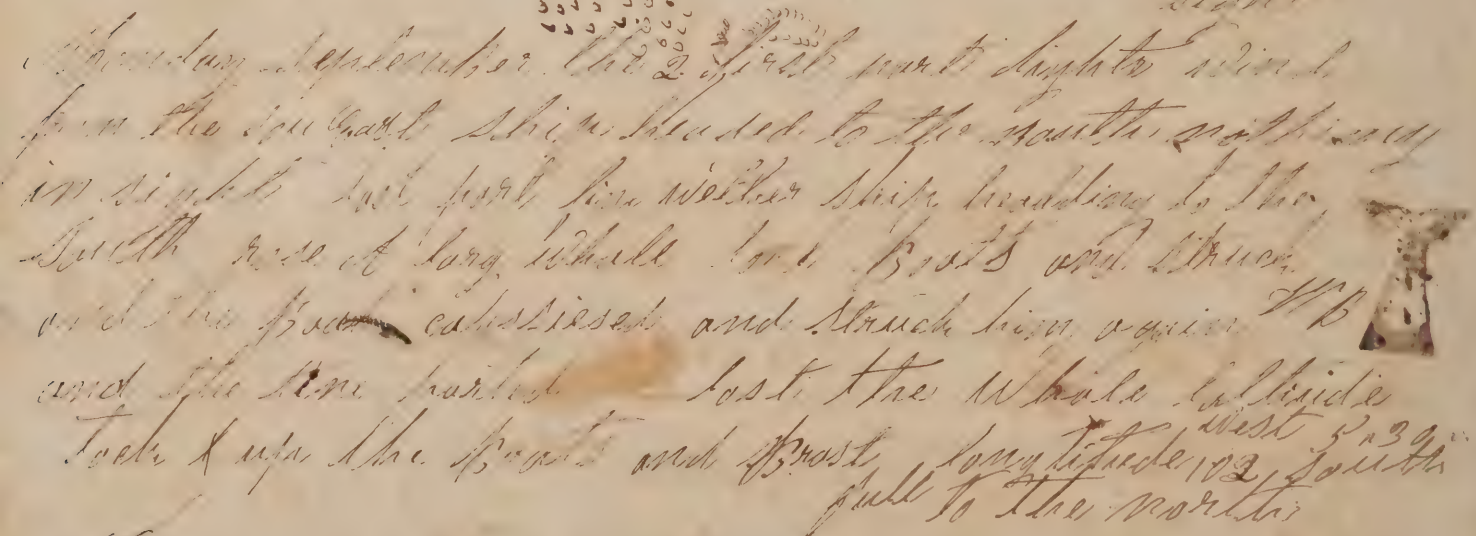 Thursday September the 2 first part lights wind
from the Sou East ship headed to the South nothing
in sight last part fine wether ship heading to the
South rose a larg whale lord Boats and struck
and the Boat capsiesed and struck him again WB
and the line parted lost the Whale Latitude
took up the Boats and Brast Longtitude 102 west 5"39 South
pull to the north